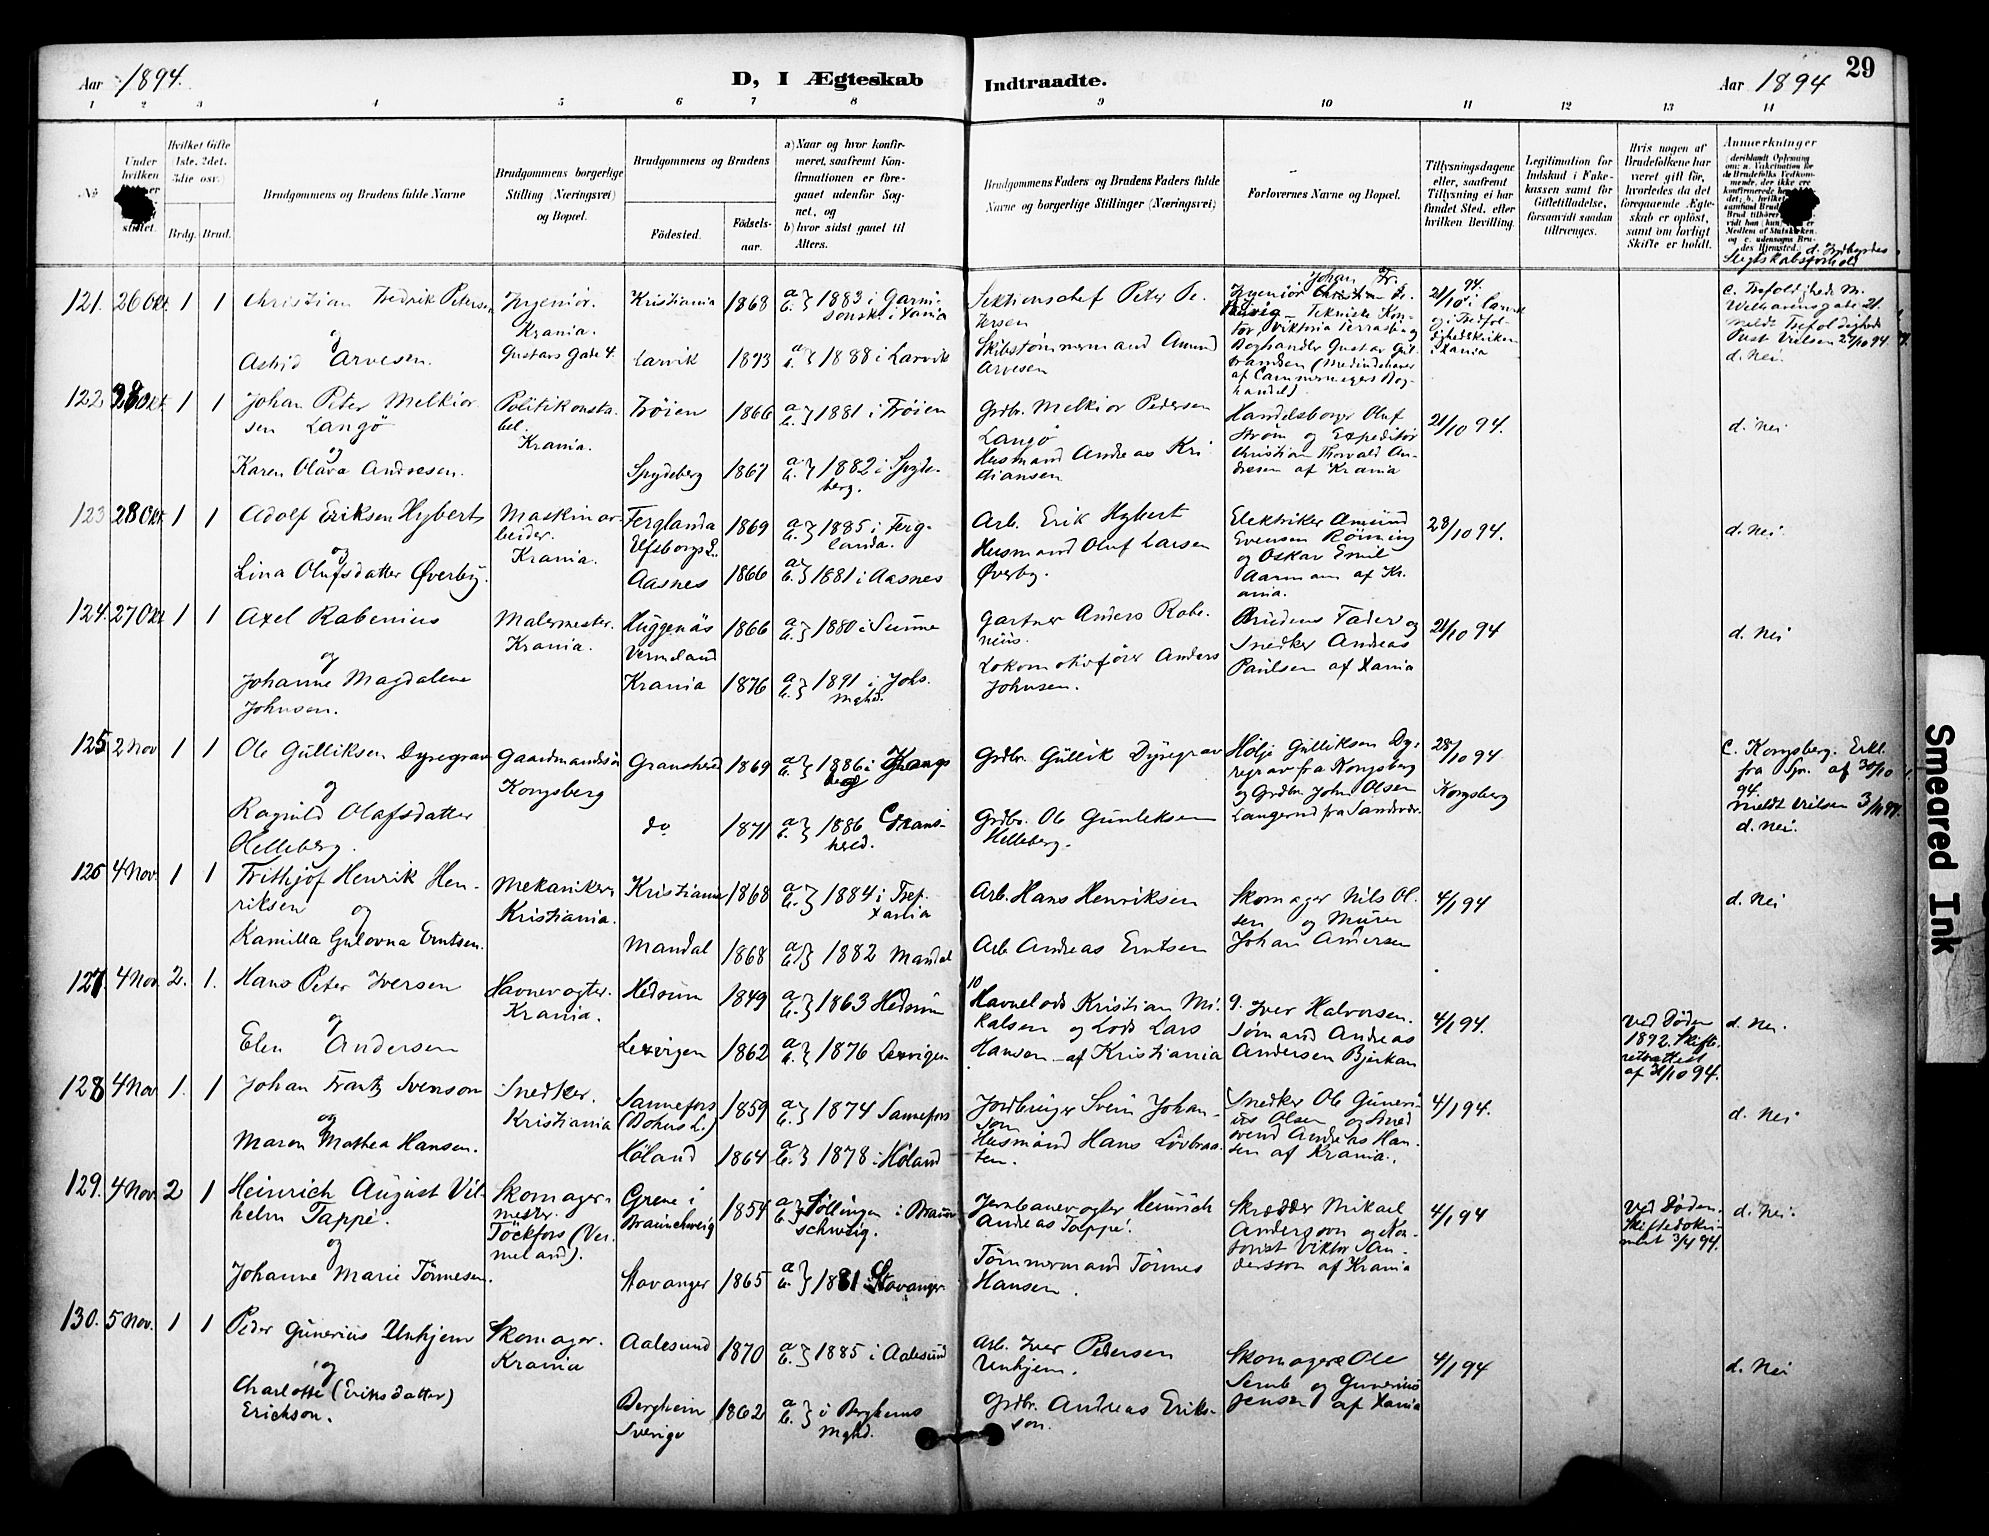 Aar 1894.
D, I Ægteskab Indtraadte.
Aar 1894
29
1 2 3 4 5 6 7 8 9 10 11 12 13 14
No
Under hvilken stiftet.
Hvilket Gifte (1ste, 2det, 3die osv.)
Brdg. Brud.
Brudgommens og Brudens fulde Navne
Brudgommens borgerlige Stilling (Næringsvei) og Bopæl.
Brudgommens og Brudens
Fødested. Fødsels-aar.
a) Naar og hvor konfirmeret, saafremt Konfirmationen er foregaaet udenfor Sognet, og
b) hvor sidst gaaet til Alters.
Brudgommens Faders og Brudens Faders fulde Navne og borgerlige Stillinger (Næringsvei)
Forlovernes Navne og Bopæl.
Tillysningsdagene eller, saafremt Tillysning ei har fundet Sted, efter hvilken Bevilling.
Legitimation for Indskud i Enkekassen samt for Giftetilladelse, forsaavidt saadan tiltrænges.
Hvis nogen af Brudefolkene har været gift før, hvorledes da det foregaaende Ægteskab er opløst, samt om lovligt Skifte er holdt.
Anmærkninger
d. Indbyrdes Slegtskabsforhold
121. 26 Okt. 1 1
Christian Fredrik Petersen
og
Astrid Arvesen.
Ingeniør.
Krania.
Gustavs Gade 4.
Kristiania 1868
a b } 1883 i Garnisonsk. i Xania
Larvik 1873
a b } 1888 i Larvik
Sektionschef Peter Petersen
Skibstømmermand Amund Arvesen
Ingeniør Johan Fr.
Tekniske Kontor, Viktoria Terrasse og Boghandler Gustav Gulbransen (Medindehaver af Cammermeyers Boghandel)
21/10 94. i Larvik og i Trefoldighedskirken i Xania
c. Trefoldigheds M.
Wilhelmsgade 21.
meldt Trefoldigheds
Præst Vielsen 27/10 94.
d. Nei
122. 28 Okt 1 1
Johan Peter Melkiorsen Langö
og
Karen Olava Andresen.
Politikonstabel.
Krania.
Trøien 1866
a b } 1881 i Trøien
Spydeberg 1867
a b } 1882 i Spydeberg.
Grdbr. Melkior Pedersen Langö
Husmand Andreas Kridiansen
Handelsborger Oluf Strøm og Expeditör Christian Thorvald Andresen af Krania
21/10 94.
d. Nei
123 28 Okt 1 1
Adolf Eriksen Hybert
og
Lina Olufsdatter Øverby.
Maskinarbeider.
Krania.
Ferglanda Elfsborgs L. 1869
a b } 1885 i Ferglanda.
Aasnes 1866
a b } 1881 i Aasnes
Arb. Erik Hybert
Husmand Oluf Larsen Øverby.
Elektriker Amund Evensen Rönning og Oskar Emil Aarmann af Krania.
28/10 94.
d. Nei.
124. 27 Okt 1 1
Axel Rabenius
og
Johanne Magdalene Johnsen.
Malermester.
Krania.
Huggenäs Vermeland 1866
a b } 1880 i Sunne
Krania 1876
a b } 1891 i Johs. Mghd.
Gartner Anders Rabenius.
Lokomotivfører Anders Johnsen.
Brudens Fader og Snedker Andreas Paulsen af Xania
21/10 94
d. Nei
125 2 Nov 1 1
Ole Gulliksen Dyregrav
og
Ragnild Olafsdatter Helleberg.
Gaardmandssön
Kongsberg
Gransherred 1869
a b } 1886 i Kongsberg
do 1871
a b } 1886 Gransherred.
Grdbr. Gullik Dyregrav
Grdbr. Ole Gunleksen Helleberg.
Hölje Gulliksen Dyregrav fra Kongsberg og Grdbr. John Olsen Langerud fra Sandsvær.
28/10 94
Kongsberg
c. Kongsberg. Erkl. fra Spr. af 30/10 94.
meldt Vielsen 3/11 94.
d. Nei.
126 4 Nov. 1 1
Frithjof Henrik Henriksen
og
Kamilla Gulovna Erntsen.
Mekaniker
Kristiania.
Kristiania 1868
a b } 1884 i Tref. Xania
Mandal 1868
a b } 1882 Mandal
Arb. Hans Henriksen
Arb. Andreas Erntsen
Skomager Nils Olsen og Murer Johan Andersen
4/1 94
d. Nei
127. 4 Nov. 2. 1.
Hans Peter Iversen
og
Elen Andersen
Havnevogter.
Krania.
Hedrum 1849
a b } 1863 Hedrum
Lexvigen 1862
a b } 1876 Lexvigen
10
Havnelods Kristian Mikalsen og Lods Lars Hansen af Kristiania
9. Iver Halvorsen.
Sømand Andreas Andersen Bjerkan
4/1 94.
Ved Døden 1892. Skifteretsattest af 31/10 94.
d. Nei.
128 4 Nov 1. 1
Johan Frantz Svenson
og
Maren Mathea Hansen.
Snedker.
Kristiania
Sannefors (Bohus L.) 1859
a b } 1874 Sannefors
Høland 1864
a b } 1878 i Høland
Jordbruger Sven Johanson
Husmand Hans Lövbraaten.
Snedker Ole Gunerius Olsen og Smedsvend Andreas Hansen af Krania.
4/1 94.
d. Nei
129. 4 Nov. 2 1
Heinrich August Vilhelm Tappé.
og
Johanne Marie Tönnesen.
Skomagermester.
Töckfors (Vermeland).
Grene i Braunschweig 1854
a b } Söllingen i Braunschweig.
Stavanger 1865
a b } 1881 Stavanger
Jernbanevogter Heinrich Andreas Tappé.
Tömmermand Tönnes Hansen.
Skrædder Mikael Andersson og Kontorist Viktor Sandersson af Krania
4/1 94
Ved Døden. Skiftedokument 3/4 94.
d. Nei.
130. 5 Nov. 1 1
Peder Gunerius Unhjem
og
Charlotte (Eriksdatter) Erickson.
Skomager.
Krania
Aalesund 1870
a b } 1885 i Aalesund
Berghem Sverige 1862
a b } i Berghems Mghd.
Arb. Iver Pedersen Unhjem.
Grdbr. Andreas Erikson.
Skomagere Ole Semb og Gunerius Jensen af Xania
4/1 94
d. Nei
Smeared Ink